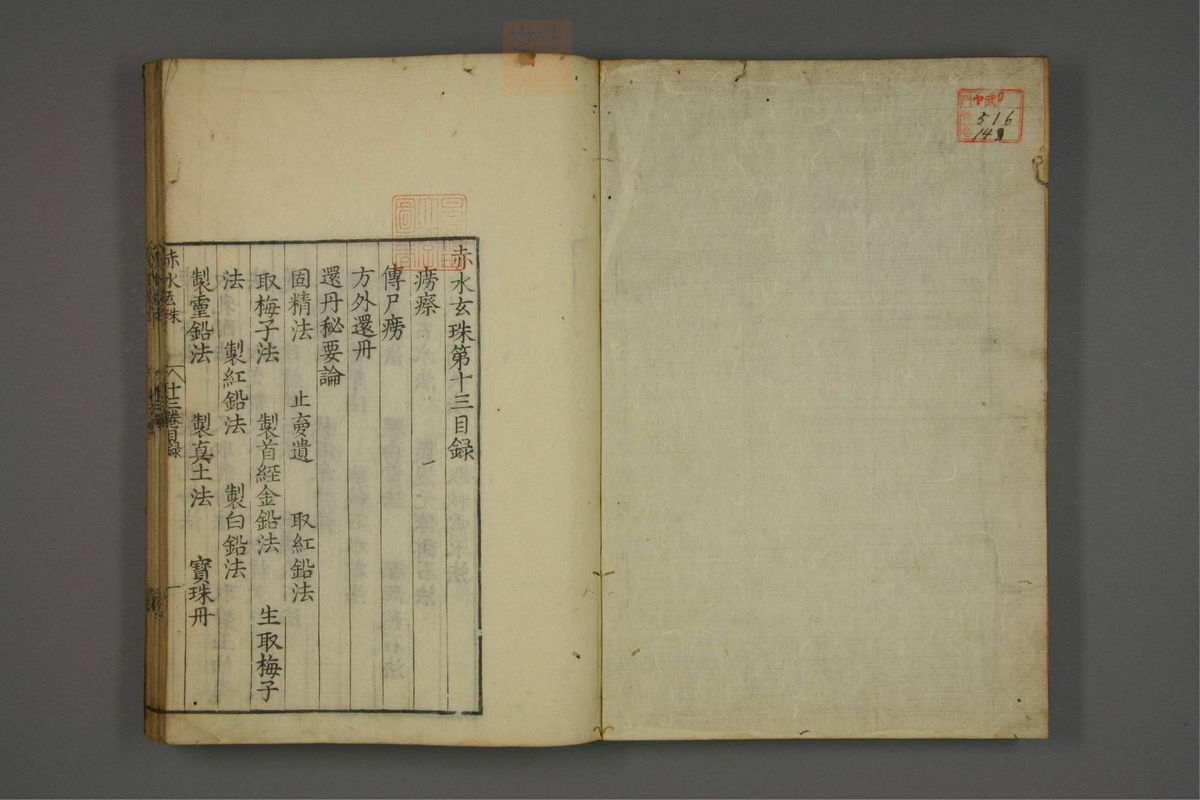 赤水玄珠第十三目録
癆瘵
傳尸癆
方外還丹
還丹秘要論
固精法 止夢遺 取紅鉛法
取梅子法 製首經金鉛法 生取梅子
法 製紅鉛法 製白鉛法
製靈鉛法 製真土法 寶珠丹
赤水玄珠 十三巻目録 一
516